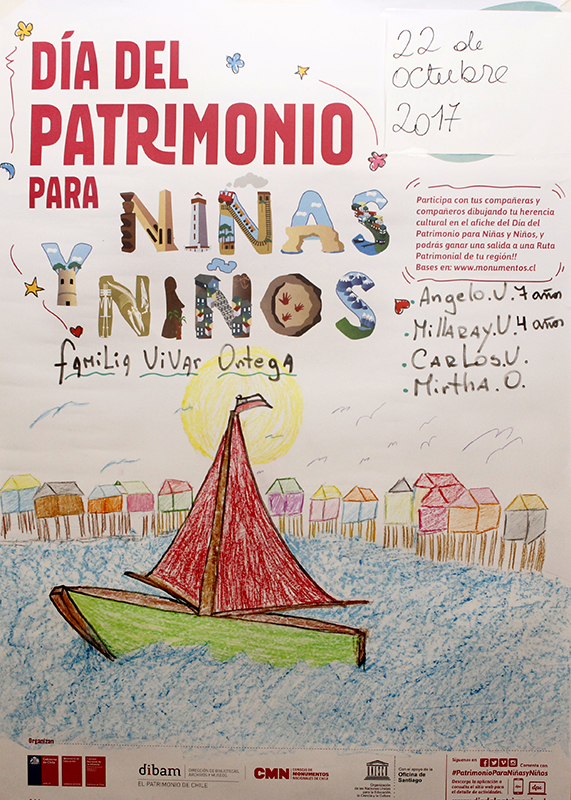 DÍA DEL
PATRIMONIO
PARA NIÑAS
Y NIÑOS
22 de
octubre
2017
Participa con tus compañeras y
compañeros dibujando tu herencia
cultural en el afiche del Día del
Patrimonio para Niñas y Niños, y
podrás ganar una salida a una Ruta
Patrimonial de tu región!!
Bases en: www.monumentos.cl
Angelo.V. 7 años
Millaray.V. 4 años
CARLOS.V.
Mirtha.O.
familia Vivar Ortega
Organizan
dibam
DIRECCIÓN DE BIBLIOTECAS,
ARCHIVOS Y MUSEOS
EL PATRIMONIO DE CHILE
CMN
CONSEJO DE
MONUMENTOS
NACIONALES DE CHILE
Con el apoyo de la
Oficina de
Santiago
Síguenos en
Comenta con
#PatrimonioParaNiñasyNiños
Descarga la aplicación o
consulta el sitio web para
el detalle de actividades.